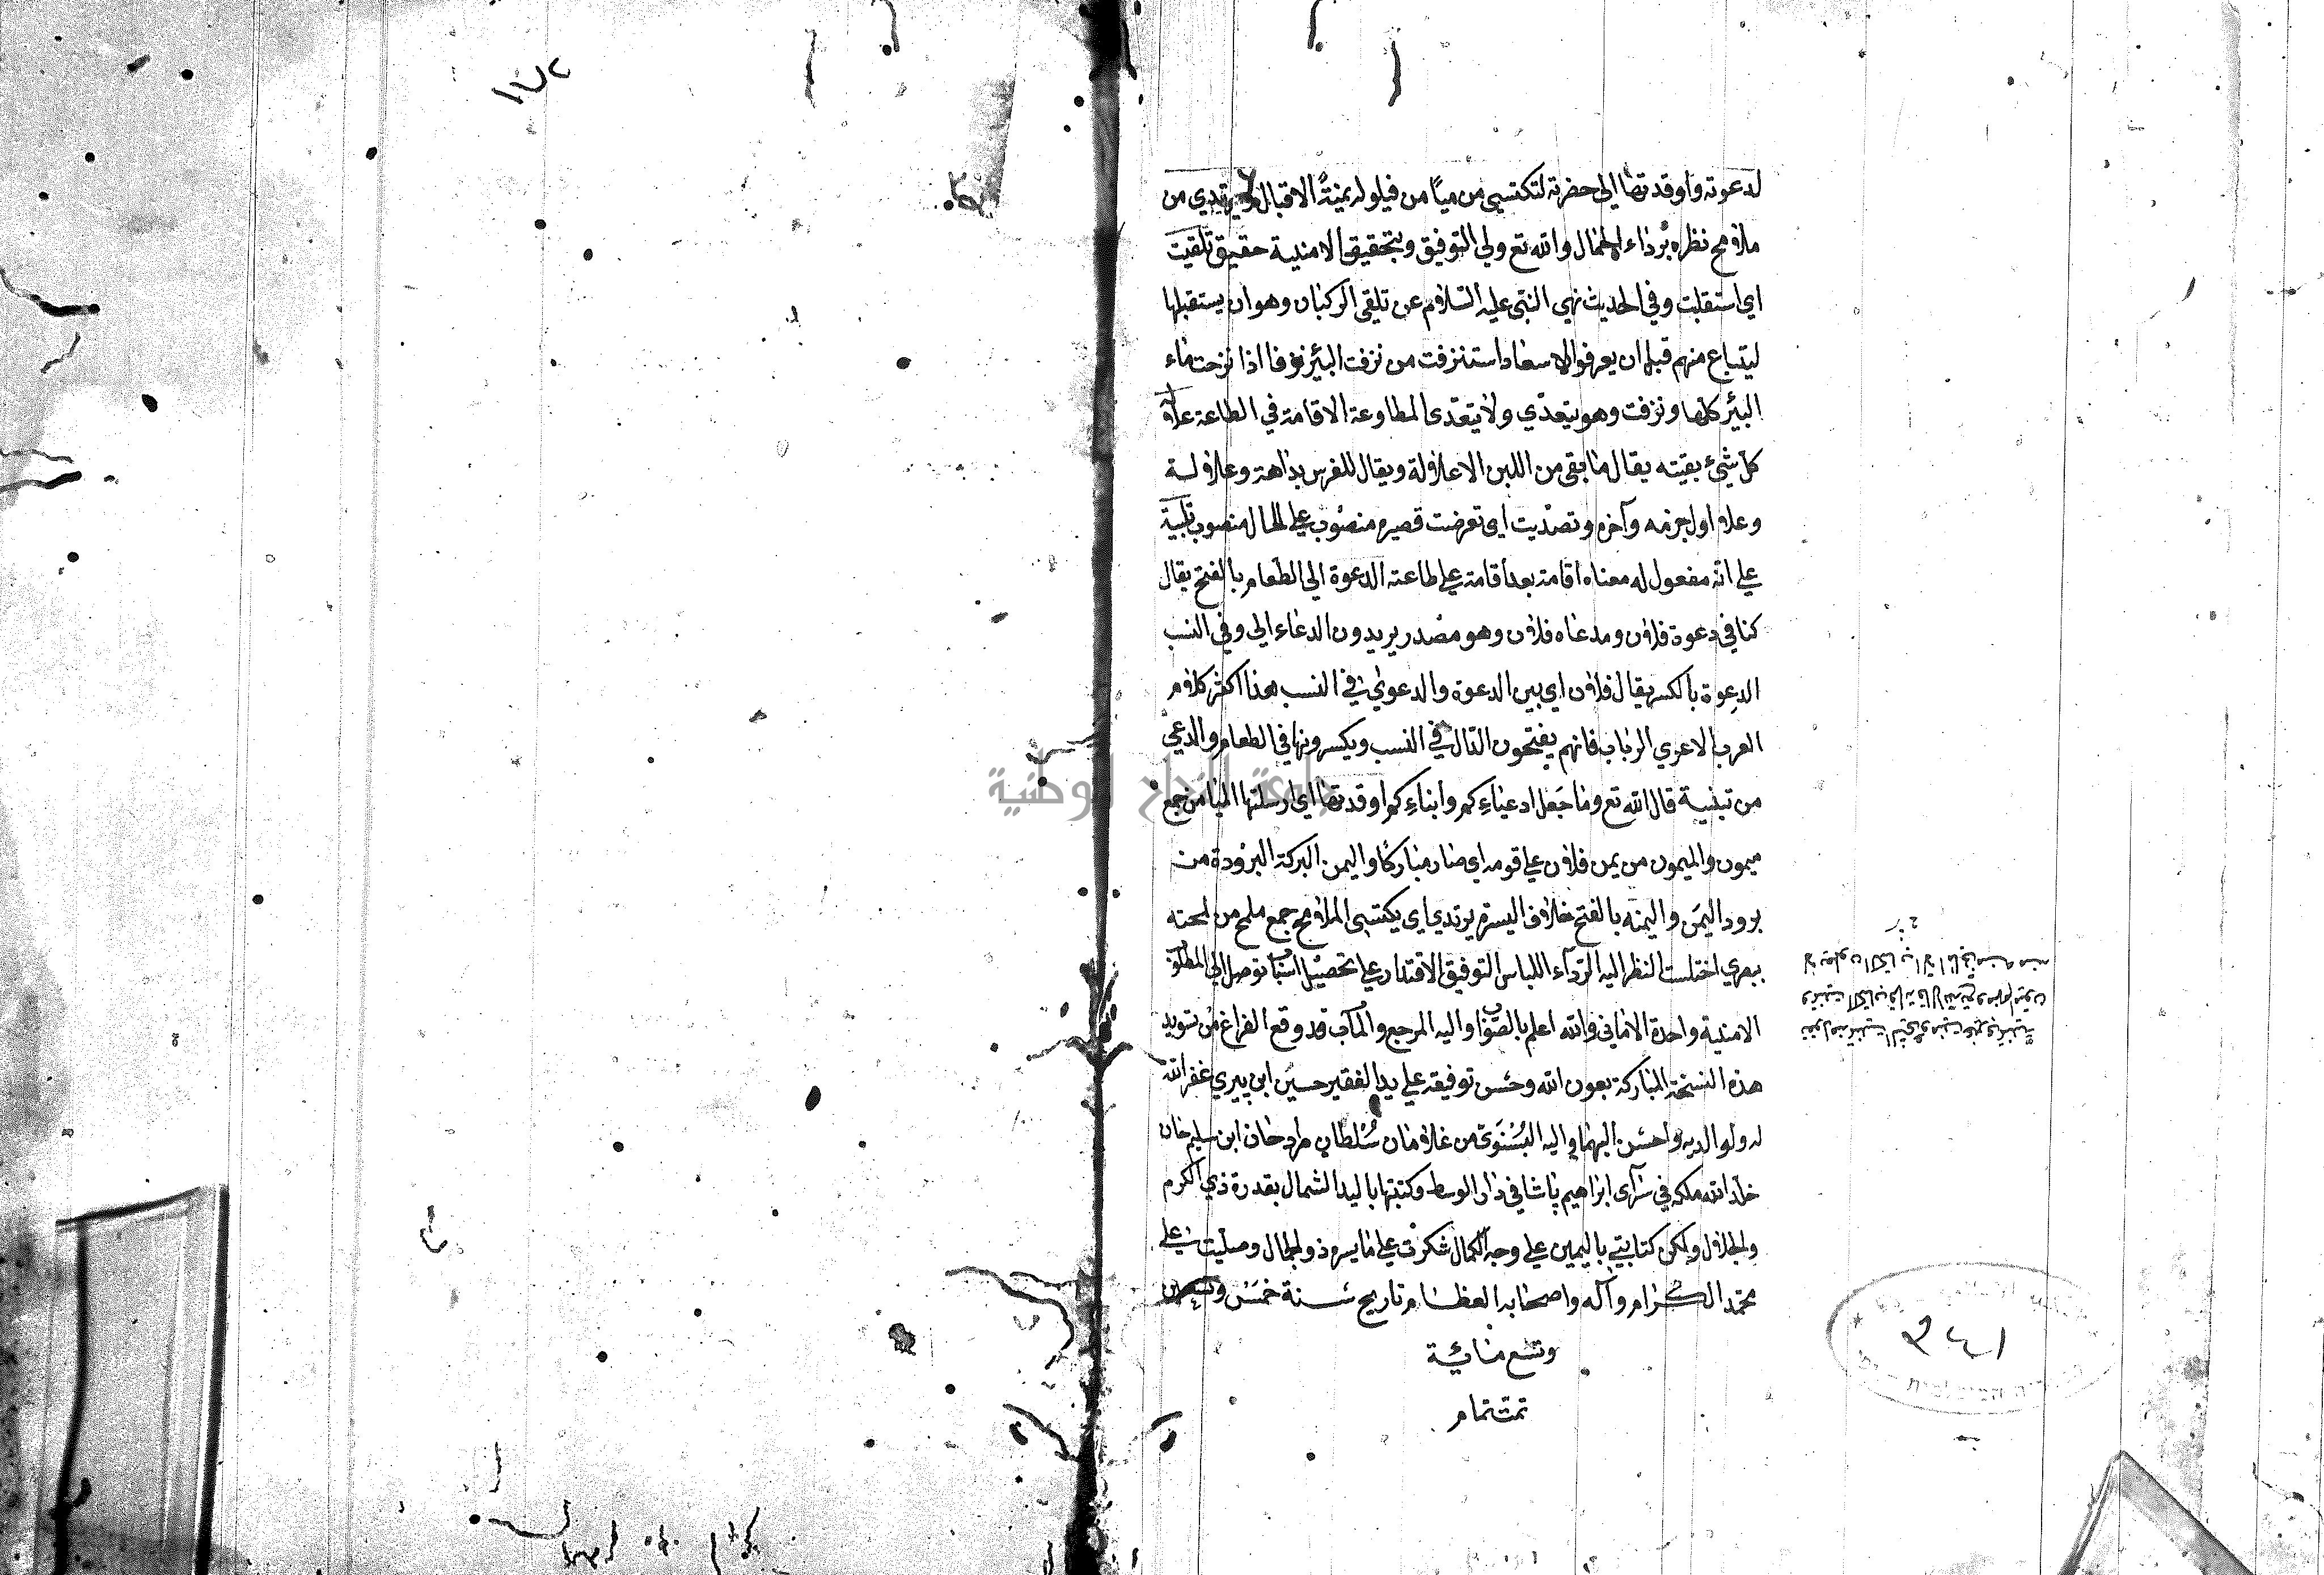 لدعوته واوفدتها الى حضرته لتكتسي من ميامن قبوله يمنة الاقبال ويرتدي من
ملامح نظره برداء الجمال والله تع ولي التوفيق وبتحقيق الامنية حقيق تلقيت
اي استقبلت وفي الحديث نهي النبي عليه السلام عن تلقي الركبان وهو ان يستقبلها
ليتباع منهم قبل ان يعرفوا الاسعار استنزفت من نزفت البئر نزفا اذا نزحت ماء
البئر كلها ونزفت وهو يتعدي ولا يتعدى المطاوعة الاقامة في الطاعة علالة
كل شيئ بقيته يقال ما بقي من اللبن الا علالة ويقال للفرس بداهة وعلالة
اول جريه وآخره وتصديت اي تعرضت قصيره منصوب على الحال منصوب تلبية
على انه مفعول له معناه اقامة بعد اقامة على طاعته الدعوة الى الطعام بالفتح يقال
كنا في دعوة فلان ومدعاه فلان وهو مصدر يريدون الدعاء الى وفي النسب
الدعوة بالكسر يقال فلان اي بين الدعوة والدعوى في النسب هذا اكثر كلام
العرب الا عدي الرباب فانهم يفتحون الدال في النسب ويكسرونها في الطعام والدعي
من تبنية قال الله تع وما جعل ادعياءكم وابناءكم اوفدتها اي ارسلتها الميامن جمع
ميمون والميمون من يمن فلان على قومه اي صار مباركا واليمن البركة البرودة من
برود اليمن واليمنه بالفتح خلاف اليسره يرتدي اي يكتسى الملامح جمع ملمح من لمحته
ببصري اختلست النظر اليه الرداء اللباس التوفيق الاقتدار على تحصيل اسباب توصل الى المطلوب
الامنية واحدة الاماني والله اعلم بالصواب واليه المرجع والمآب قد وقع الفراغ من تسويد
هذه النسخة المباركة بعون الله وحسن توفيقه على يد الفقير حسين ابن پيري غفر الله
له ولوالديه واحسن اليهما واليه البسنوى من غلامان سلطان مراد خان ابن سليم خان
خلد الله ملكه في سراى ابراهيم پاشا في دار الوسط وكتبتها باليد الشمال بقدرة ذي الكرم
والجلال ولكن كتابتي باليمين على وجه الكمال شكرت على ما يسره ذو الجمال وصليت على
محمد الكرام وآله واصحابه العظام تاريخ سنة خمس
وتسع مائية
تمت تمام
جامعة النجاح الوطنية
١٧٢
٣٤١